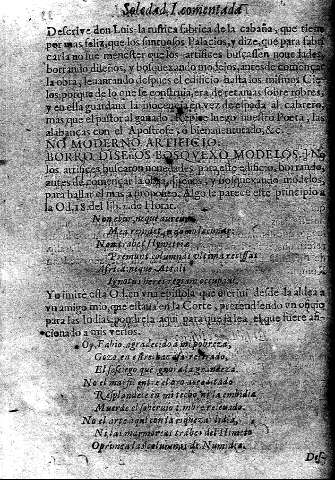 Soledad I. comentada
Descrive don Luis la rustica fabrica de la cabaña, que tiene
por mas feliz, que los sumptuosos Palacios, y dize, que para fabri-
carla no fue menester que los artifices buscassen nouedades,
borrando diseños, y bosquexando modelos, antes de començar
la obra, leuantando despues el edificio hasta los mismos Cie-
los, porque de lo que se construia, era de retamas sobre robres,
y en ella guardaua la inocencia en vez de espada al cabrero,
mas que el pastoral ganado. Repite luego nuestro Poeta, las
alabanças con el Apostrofe, ò bienauenturado, &c.
NO MODERNO ARTIFICIO.
BORRO DISEÑOS BOSQVEXO MODELOS.
los artifices buscaron nouedades para este edificio, borrando,
antes de començar la obra, diseños, y bosquexando modelos,
para hallar el mas a proposito. Algo se parece este principio a
la Od. 18. del lib. 2. de Horat.
Non ebur, neque aureum
Mea renidet in domo lacunar:
Non trabes Hymettiæ
Premunt columnas vltima recisas
Africa: neque Attali
Ignotus heres regiam occupaui.
Yo imité esta Od. en vna epistola que escriui desde la aldea a
vn amigo mio, que estaua en la Corte, pretendiendo vn oficio
para las Indias, por la aqui para que la lea, el que fuere afi-
cionado a mis versos.
Oy, Fabio, agradecido a mi pobreza,
Goza en estre
El sossiego que ignora la grandeza.
No el marfil entre el oro
Resplandece en mi techo, ni la embidia
Muerde el soberuio
No el arte aqui con la riqueza lidia,
Ni las marmoreas trabes del Himeto
Oprimen las colunas de Numidia.
Des-